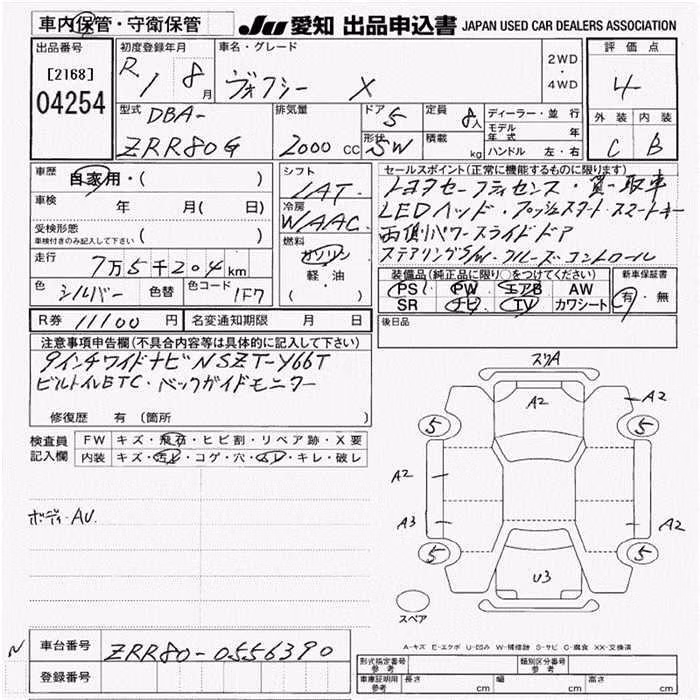 車内保管・守衛保管
JU 愛知 出品申込書 JAPAN USED CAR DEALERS ASSOCIATION
出品番号
[2168]
04254
初度登録年月
R 1 8 月
車名・グレード
ヴォクシー X
2WD
・
4WD
評価点
4
外装 内装
C B
型式
DBA-
ZRR80G
排気量
2000 CC
ドア 5
形状 SW
定員 8人
積載 kg
ディーラー・並行
モデル年式 年
ハンドル 左・右
車歴
自家用・( )
車検 年 月( 日)
受検形態
車検付きのみ記入して下さい ( )
走行
7万5千204km
色 シルバー 色替 色コード 1F7
シフト
IAT
冷房
WAAC
燃料
ガソリン
軽・油
( )
セールスポイント(正常に機能するものに限ります)
トヨタセーフティセンス・買取車
LEDヘッド・プッシュスタート・スマートキー
両側パワースライドドア
ステアリングS/W・クルーズコントロール
装備品(純正品に限り○をつけてください)
PS PW エアB AW
SR ナビ TV カワシート
新車保証書
有・無
R券 11100 円 名変通知期限 月 日
後日品
注意事項申告欄(不具合内容等は具体的に記入して下さい)
9インチワイドナビNSZT-Y66T
ビルトインETC・バックガイドモニター
修復歴 有(箇所 )
検査員
記入欄
FW キズ・飛石・ヒビ割・リペア跡・X要
内装 キズ・汚レ・コゲ・穴・スレ・キレ・破レ
ボディ・AU.
スリA
A2
A2
5
5
A2
A3
A2
5
5
U3
スペア
A-キズ E-エクボ U-凹み W-補修跡 S-サビ C-腐食 XX-交換済
N
車台番号 ZRR80-0556390
登録番号
形式指定番号
参考
類別区分番号
参考
車庫証明用
参考
長さ cm 幅 cm 高さ cm